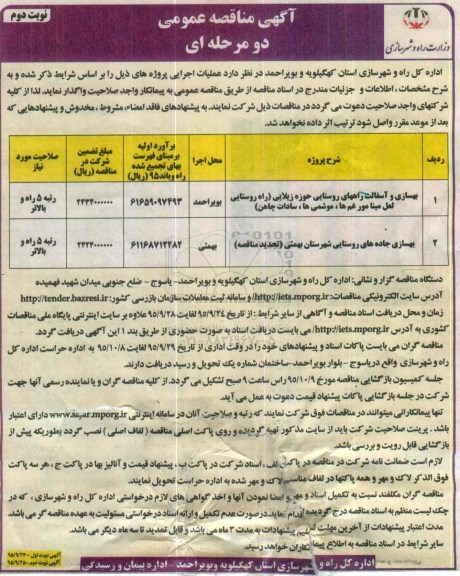 نوبت دوم
آگهی مناقصه عمومی
دو مرحله ای
وزارت راه و شهرسازی
اداره کل راه و شهرسازی استان کهگیلویه و بویراحمد در نظر دارد عملیات اجرایی پروژه های ذیل را بر اساس شرایط ذکر شده و به
شرح مشخصات ، اطلاعات و جزئیات مندرج در اسناد مناقصه از طریق مناقصه عمومی به پیمانکار واجد صلاحیت واگذار نماید. لذا از کلیه
شرکتهای واجد صلاحیت دعوت می گردد در مناقصات ذیل شرکت نمایند. به پیشنهادهای فاقد امضاء، مشروط ، مخدوش و پیشنهادهایی که
بعد از موعد مقرر واصل شود ترتیب اثر داده نخواهد شد.
ردیف
شرح پروژه
محل اجرا
برآورد اولیه برمبنای فهرست بهای تجمیع شده راه وباند۹۵ (ریال)
مبلغ تضمین شرکت در مناقصه (ریال)
صلاحیت مورد نیاز
۱
بهسازی و آسفالت راههای روستایی حوزه زیلایی (راه روستایی
لعل مینا مور غم ها ، موشمی ها ، سادات چاهن)
بویراحمد
۶۱۶۵۹۰۹۷۴۹۳
۲۴۳۴۰۰۰۰۰۰
رتبه ۵ راه و بالاتر
۲
بهسازی جاده های روستایی شهرستان بهمئی (تجدید مناقصه)
بهمئی
۶۱۱۶۸۷۱۲۲۸۲
۲۴۲۴۰۰۰۰۰۰
رتبه ۵ راه و بالاتر
دستگاه مناقصه گزار و نشانی: اداره کل راه و شهرسازی استان کهگیلویه و بویراحمد- یاسوج - ضلع جنوبی میدان شهید فهمیده
آدرس سایت الکترونیکی مناقصات: http://iets.mporg.ir و سامانه ثبت معاملات سازمان بازرسی کشور: http://tender.bazresi.ir
زمان و محل دریافت اسناد مناقصه و آگاهی از سایر شرایط : از تاریخ ۹۵/۹/۲۴ لغایت ۹۵/۹/۲۸ علاوه بر سایت اینترنتی پایگاه ملی مناقصات
کشوری به آدرس http://iets.mporg.ir/ می بایست دریافت اسناد به صورت حضوری از طریق بند ۱ این آگهی دریافت گردد.
مناقصه گران می بایست پاکات اسناد و پیشنهادهای خود را در وقت اداری از تاریخ ۹۵/۹/۲۹ لغایت ۹۵/۱۰/۸ به اداره حراست اداره کل
راه و شهرسازی واقع در یاسوج - بلوار بویراحمد-ساختمان شماره یک تحویل و رسید دریافت دارند.
جلسه کمیسیون بازگشایی مناقصه مورخ ۹۵/۱۰/۹ راس ساعت ۹ صبح تشکیل می گردد. از کلیه مناقصه گران و یا نماینده رسمی آنها جهت
شرکت در جلسه بازگشایی پاکات پیشنهاد قیمت دعوت به عمل می آید.
تنها پیمانکارانی میتوانند در مناقصات فوق شرکت نمایند که رتبه و صلاحیت آنان در سامانه اینترنتی www.sajar.mporg.ir دارای اعتبار
باشد . پرینت صلاحیت شرکت باید از سایت مذکور تهیه گردیده و روی پاکت اصلی مناقصه ( لفاف اصلی ) نصب گردد بطوریکه پیش از
بازگشایی قابل رویت و بررسی باشد.
لازم است ضمانت نامه شرکت در مناقصه در پاکت الف ، اسناد شرکت در پاکت ب ، پیشنهاد قیمت و آنالیز بها در پاکت ج ، هر سه پاکت
فوق الذکر لاک و مهر و همه پاکتها در لفاف مناسب لاک و مهر شده به اداره حراست تحویل نمایند.
مناقصه گران مکلفند نسبت به تکمیل اسناد و مهر و امضا نمودن آنها و اخذ گواهی های لازم درخواستی اداره کل راه و شهرسازی ، که در
چک لیست منظم به اسناد مناقصه درج گردیده اقدام نمایند.در صورت عدم تکمیل و ارائه اسناد درخواستی مسئولیت به عهده مناقصه گر می باشد.
مدت اعتبار پیشنهادات از آخرین مهلت تسلیم پیشنهادات به مدت ۳ ماه می باشد و قابل تمدید تا سه ماه دیگر می باشد.
سایر شرایط در اسناد مناقصه به اطلاع پیمانکاران خواهد رسید.
اداره کل راه و شهرسازی استان کهگیلویه وبویراحمد - اداره پیمان و رسیدگی
آگهی نوبت اول: ۹۵/۹/۲۴
آگهی نوبت دوم: ۹۵/۹/۲۵